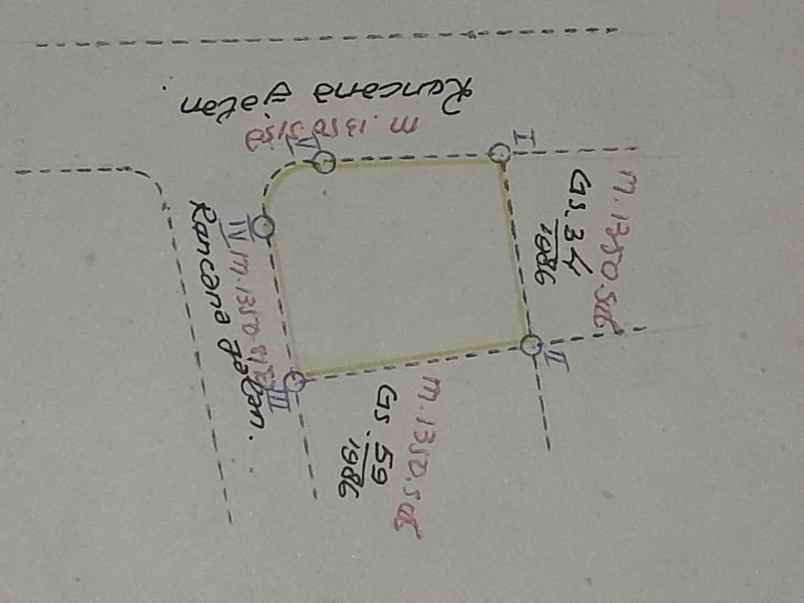 Rancana jalan
m.1350.sisa
I
m.1350.seb
Gs. 34
1986
II
m.1350.seb
Gs. 59
1986
III
m.1350.sisa
Rancana jalan.
IV
V